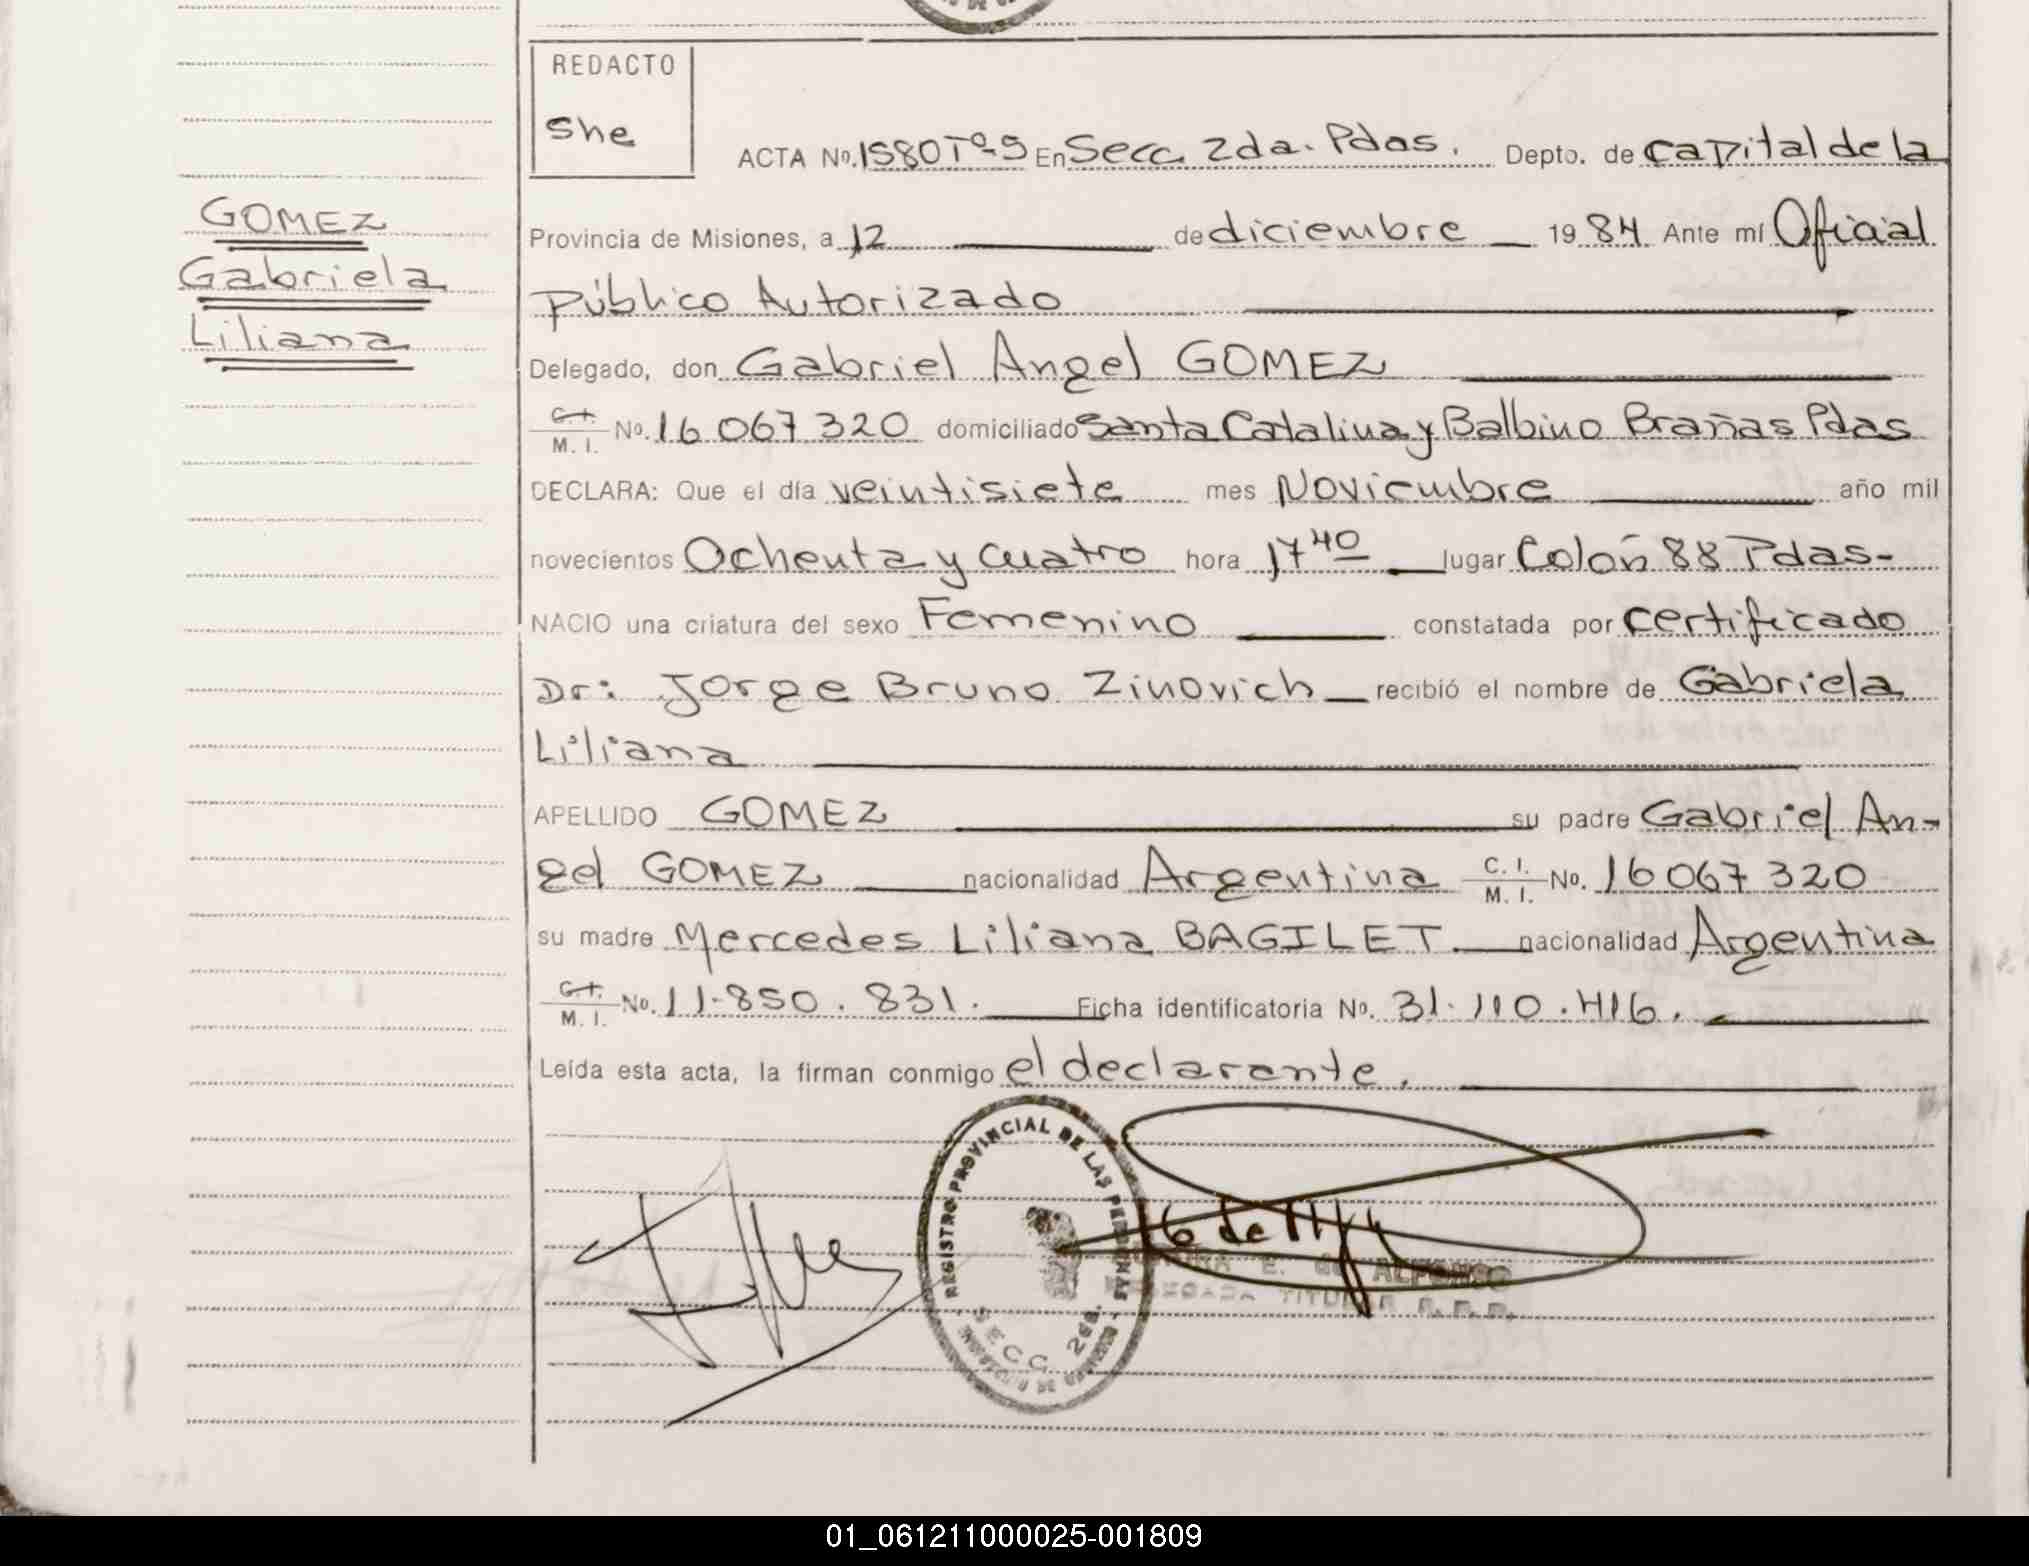 REDACTO
She
ACTA No. 1580 Tº-9 En Secc. 2da. Pdas. Depto. de capital de la
GOMEZ
Gabriela
Liliana
Provincia de Misiones, a 12 de diciembre 1984 Ante mí Oficial
Público Autorizado
Delegado, don Gabriel Angel GOMEZ
C.I. M.I. No. 16 067 320 domiciliado Santa Catalina y Balbino Brañas Pdas
DECLARA: Que el día veintisiete mes Noviembre año mil
novecientos Ochenta y cuatro hora 17 40 lugar Colón 88 Pdas-
NACIO una criatura del sexo Femenino constatada por certificado
Dr: Jorge Bruno Zinovich recibió el nombre de Gabriela
Liliana
APELLIDO GOMEZ su padre Gabriel An-
gel GOMEZ nacionalidad Argentina C. I. M. I. No. 16 067 320
su madre Mercedes Liliana BAGILET nacionalidad Argentina
C.I. M. I. No. 11.850.831. Ficha identificatoria No. 31.110.416.
Leída esta acta, la firman conmigo el declarante.
REGISTRO PROVINCIAL DE LAS PERSONAS
SECC. 2da.
E. G. ALFONSO
TITULAR R.P.P.
01_061211000025-001809